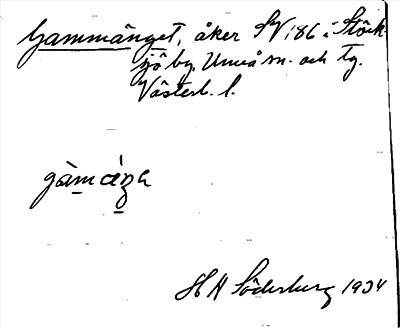 Gammänget, åker SV i 86 i Stöck
sjö by, Umeå sn. och tg.
Västerb. l.
gàmáŋa
H H Söderburg 1934